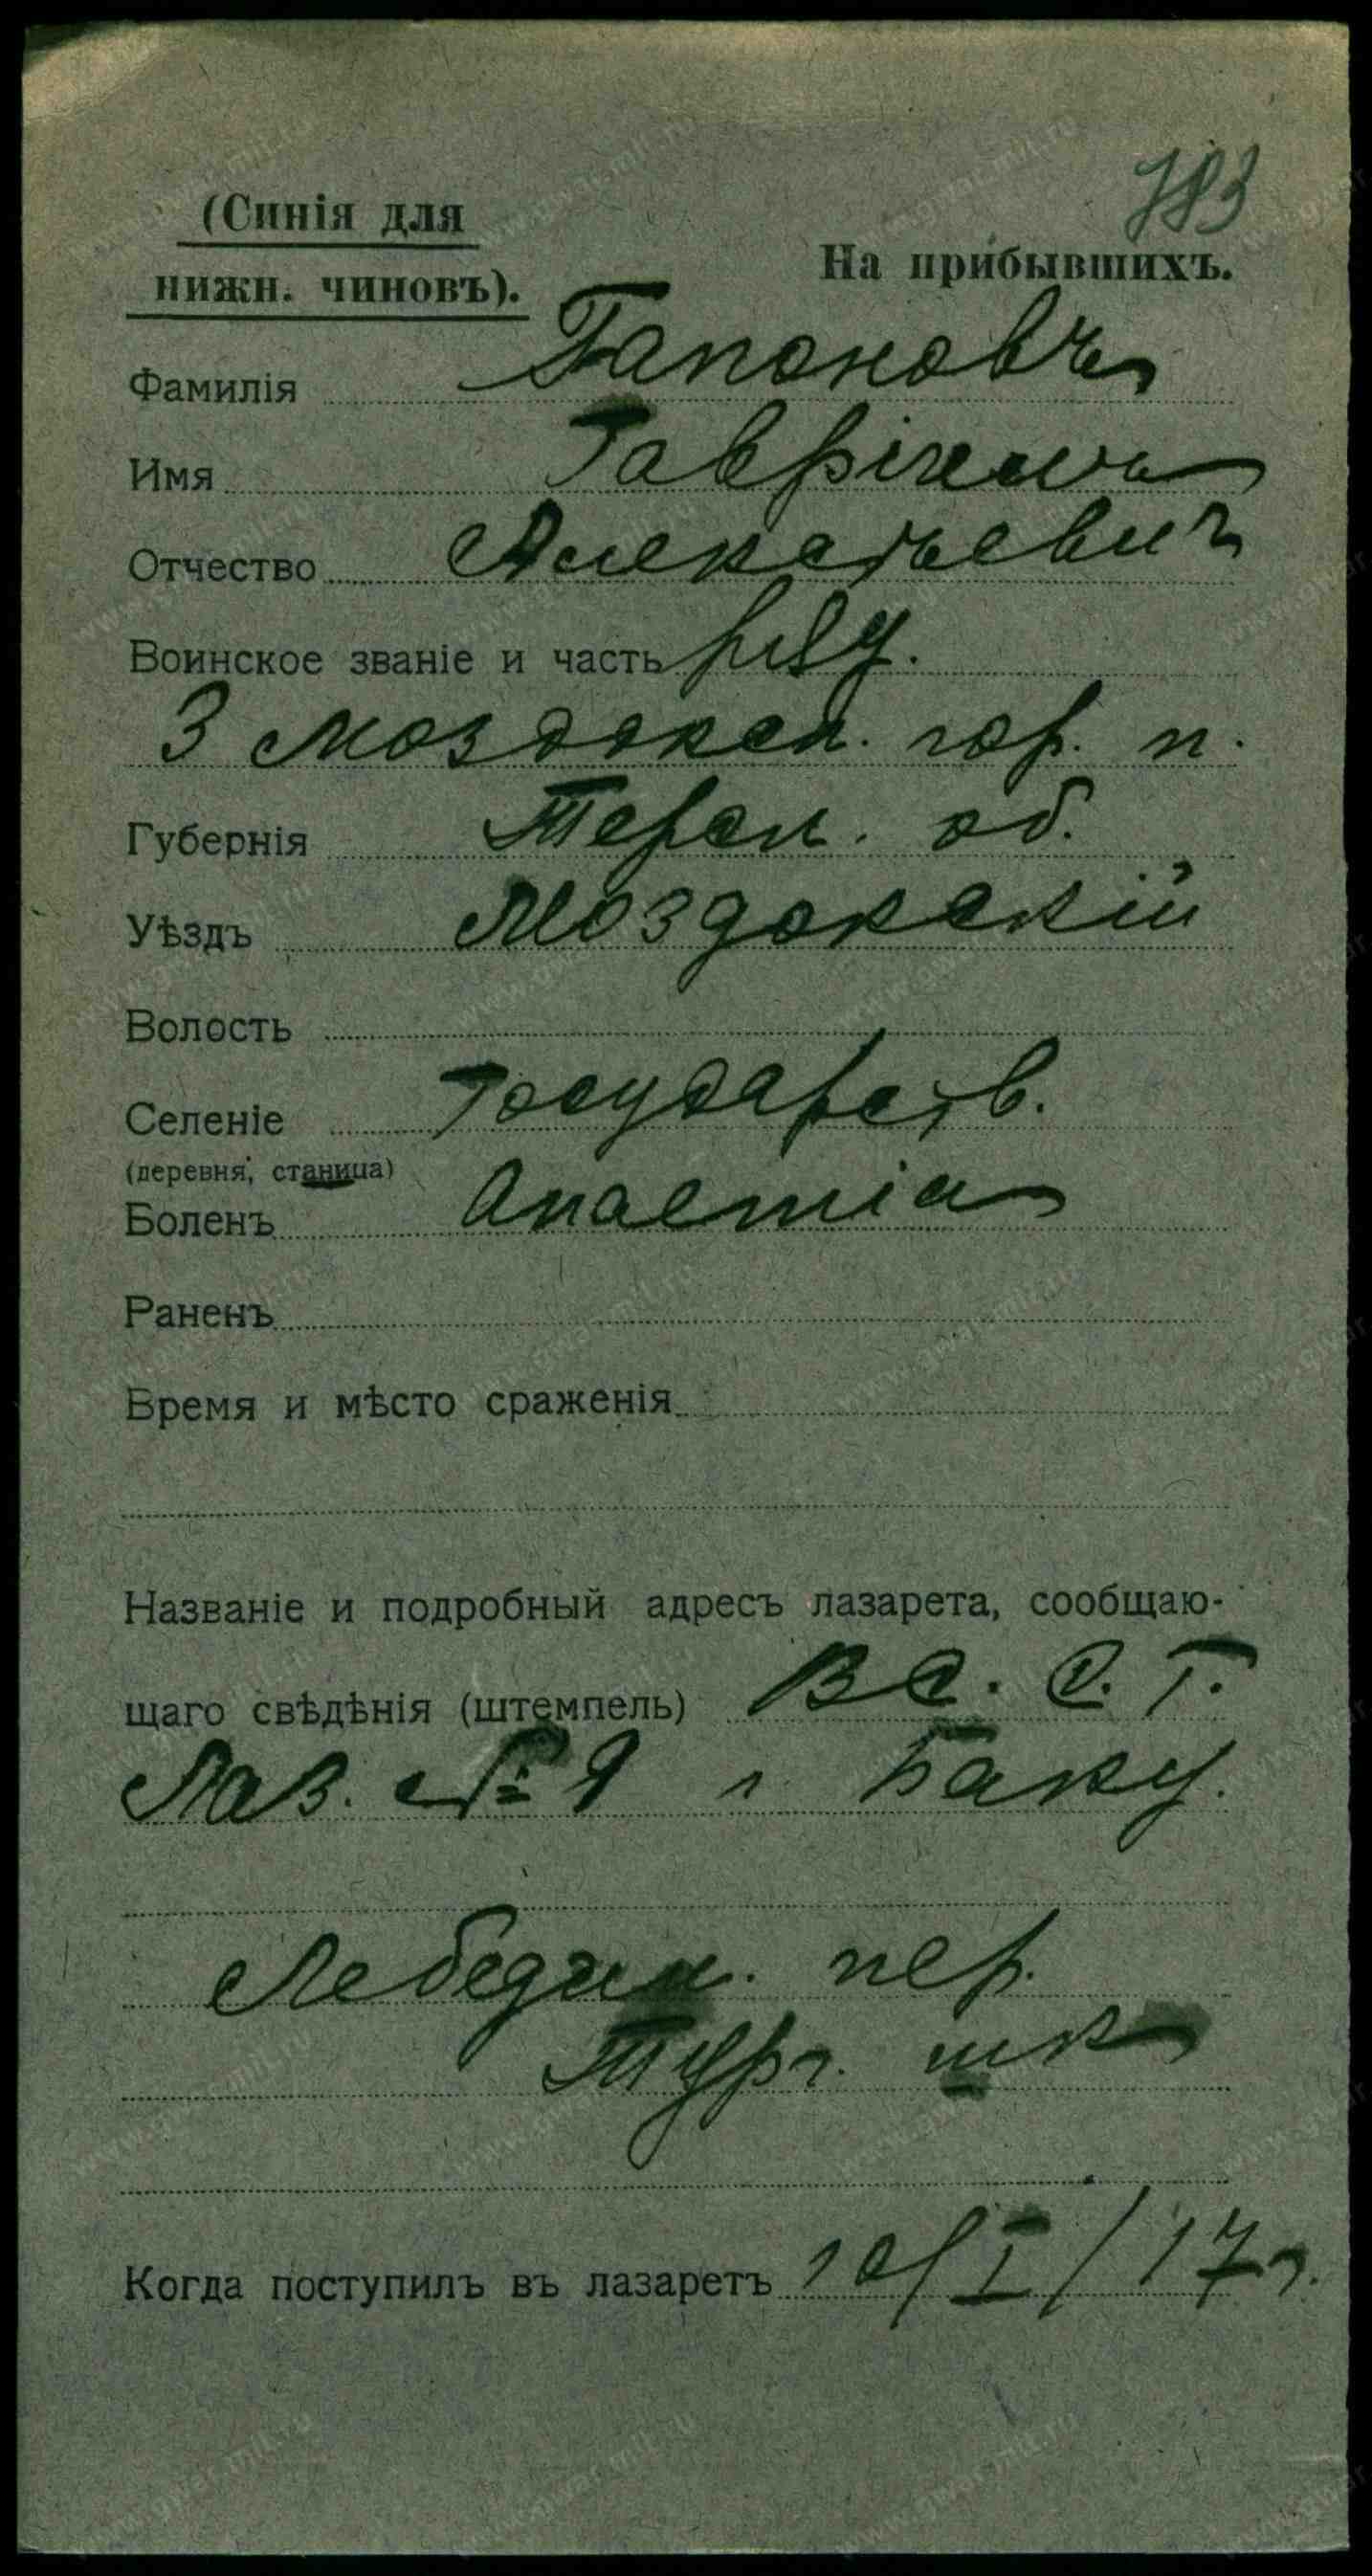 783
(Синія для
нижн. чиновъ).
На прибывшихъ.
Фамилія Гапоновъ
Имя
Отчество
Воинское званіе и часть ряд.
3 Моздокск. гор. п.
Губернія Терск. об.
Уѣздъ Моздокскій
Волость
Селеніе Государств.
(деревня, станица)
Боленъ Anaemia
Раненъ
Время и мѣсто сраженія
Названіе и подробный адресъ лазарета, сообщаю-
щаго свѣдѣнія (штемпель) В С. С. Г.
Лаз. № 9 г Баку.
Лебедин. пер.
Тург. шк
Когда поступилъ въ лазаретъ 10/I/17 г.